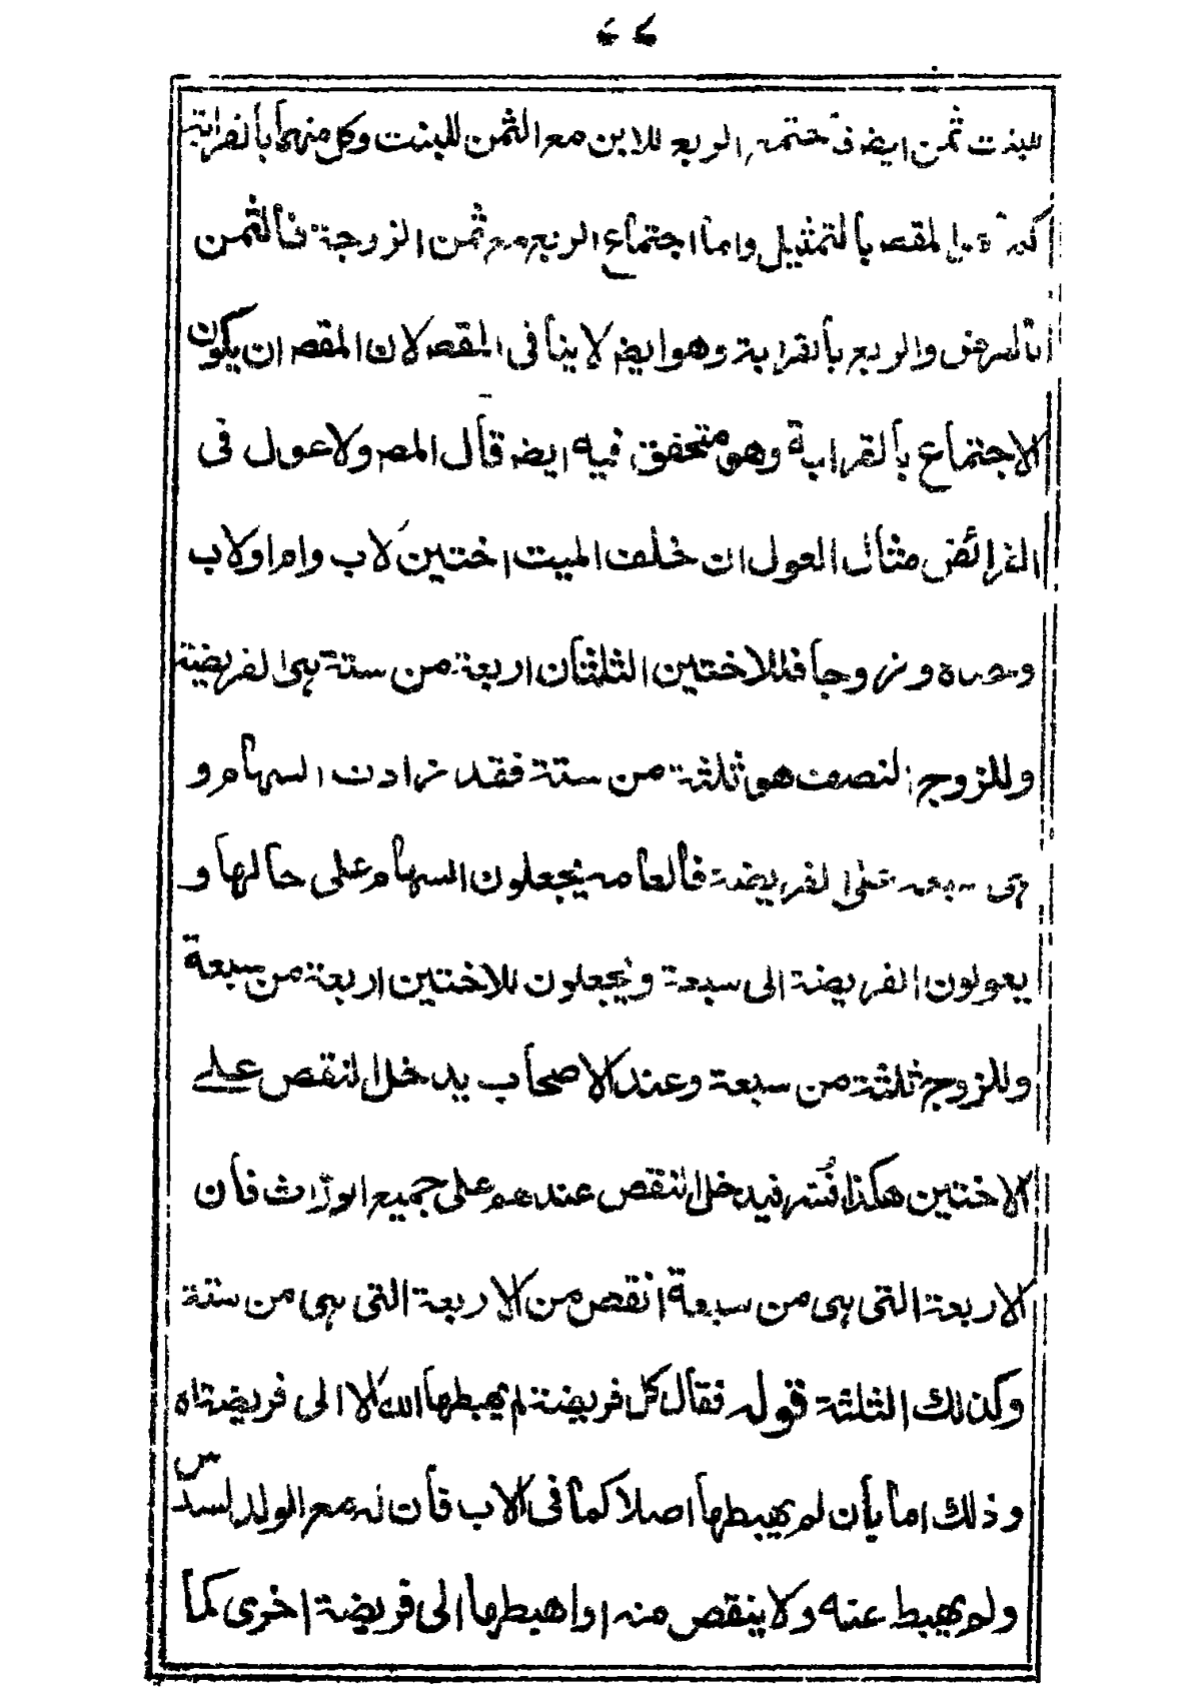 للبنت ثمن ايضه الربع للابن مع الثمن للبنت وكل منهما بالقرابة
لمقصه بالتمثيل واما اجتماع الربع مع ثمن الزوجة فالثمن
بالفرض والربع بالقرابة وهو ايضه لا ينافى المقصه لان المقصه ان يكون
الاجتماع بالقرابة وهو متحقق فيه ايضه قال المصه ولا عول فى
الفرائض مثال العول ان خلف الميت اختين لاب وام او لاب
وزوجا فللاختين الثلثان اربعة من ستة هى الفريضة
وللزوج النصف هو ثلثة من ستة فقد زادت السهام و
هى سبعة على الفريضة فالعامه يجعلون السهام على حالها و
يعولون الفريضة الى سبعة ويجعلون للاختين اربعة من سبعة
وللزوج ثلثة من سبعة وعند الاصحاب يدخل النقص على
الاختين هكذا فيدخل النقص عندهم على جميع الوراث فان
الاربعة التى هى من سبعة انقص من الاربعة التى هى من ستة
وكذلك الثلثة قوله فقال كل فريضة لم يهبطها الله الا الى فريضة اه
وذلك اما بان لم يهبطها اصلا كما فى الاب فان له مع الولد لسدس
ولم يهبط عنه ولا ينقص منه او اهبطها الى فريضة اخرى كما